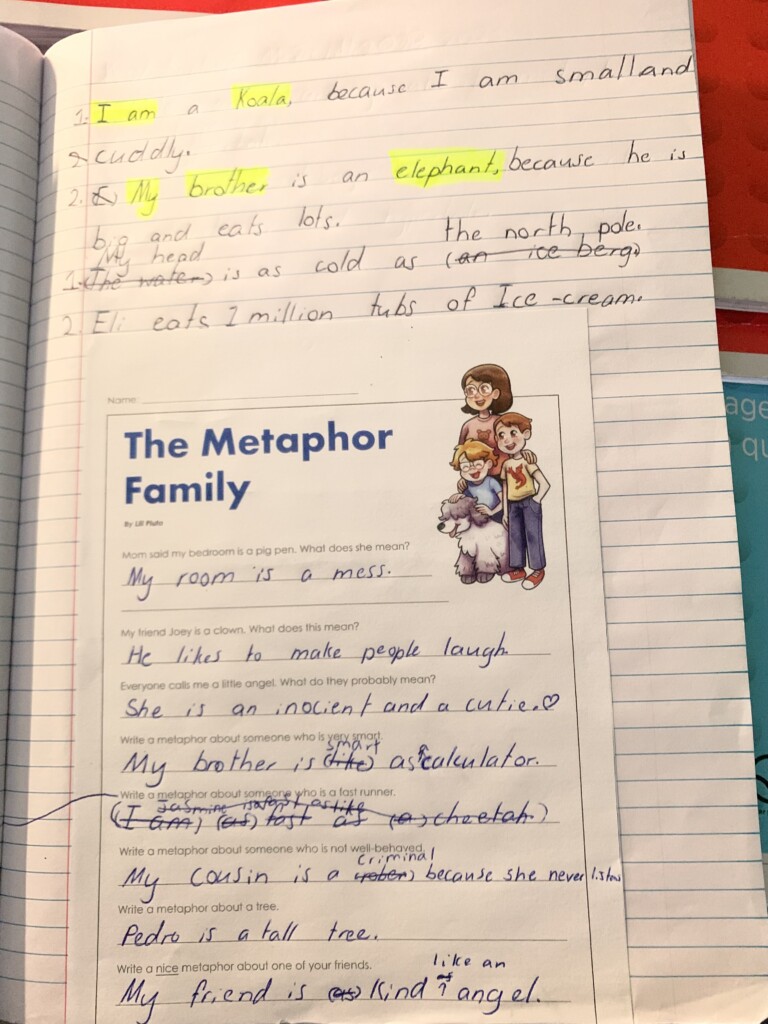 1. I am a Koala, because I am small and
cuddly.
2. My brother is an elephant, because he is
big and eats lots.
My head the north pole.
1. (The water) is as cold as (an ice berg)
2. Eli eats 1 million tubs of Ice-cream.
Name:
The Metaphor
Family
By Lill Pluta
Mom said my bedroom is a pig pen. What does she mean?
My room is a mess.
My friend Joey is a clown. What does this mean?
He likes to make people laugh.
Everyone calls me a little angel. What do they probably mean?
She is an inocient and a cutie.♡
Write a metaphor about someone who is very smart.
smart
My brother is (like) as calculator.
Write a metaphor about someone who is a fast runner.
Jasmine is as fast as like
(I am) (as) fast as (a) cheetah.)
Write a metaphor about someone who is not well-behaved.
criminal
My cousin is a (rober) because she never listens
Write a metaphor about a tree.
Pedro is a tall tree.
Write a nice metaphor about one of your friends.
like an
My friend is (as) kind angel.
age
qu